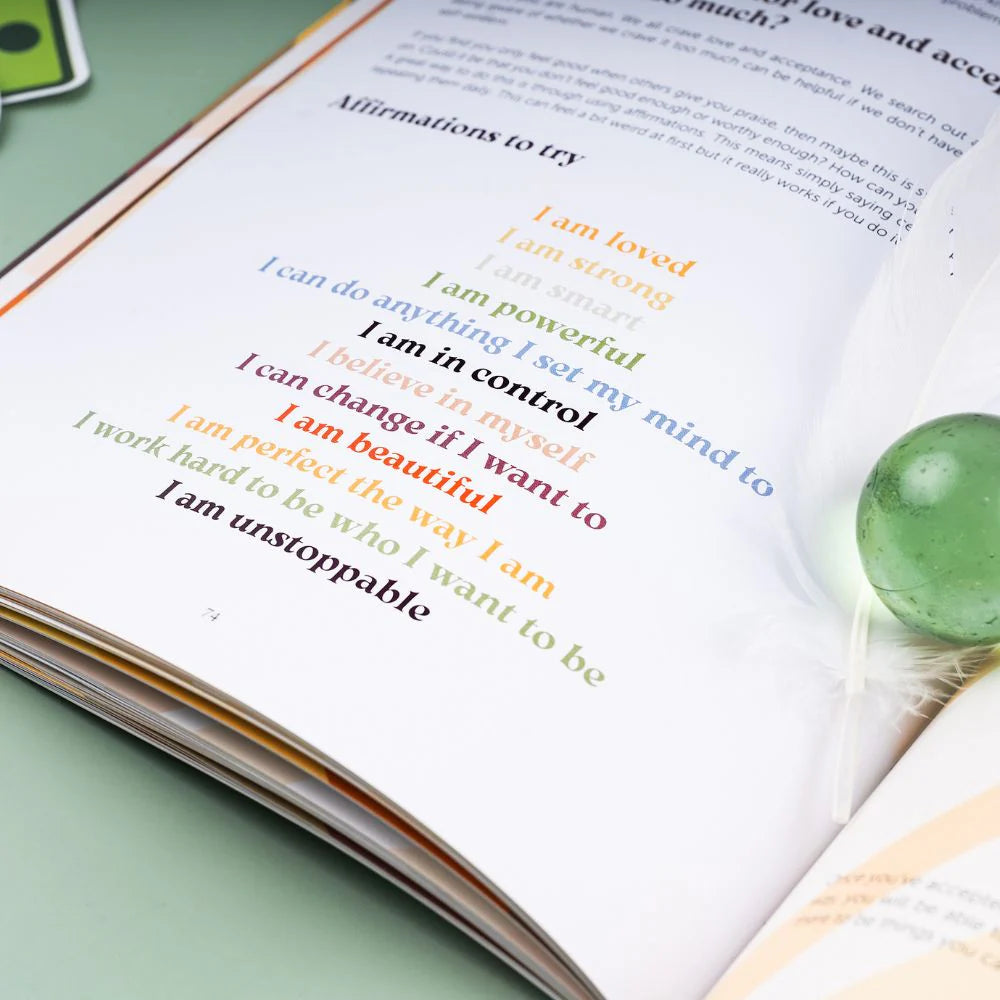 or love and accep
oo much?
are human. We all crave love and acceptance. We search out
being aware of whether we crave it too much can be helpful if we don't have
self-esteem.
If you find you only feel good when others give you praise, then maybe this is s
Could it be that you don't feel good enough or worthy enough? How can you
A great way to do this is through using affirmations. This means simply saying ce
repeating them daily. This can feel a bit weird at first but it really works if you do it
Affirmations to try
I am loved
I am strong
I am smart
I am powerful
I can do anything I set my mind to
I am in control
I believe in myself
I can change if I want to
I am beautiful
I am perfect the way I am
I work hard to be who I want to be
I am unstoppable
74
you've accepte
will be able
to be things you ca